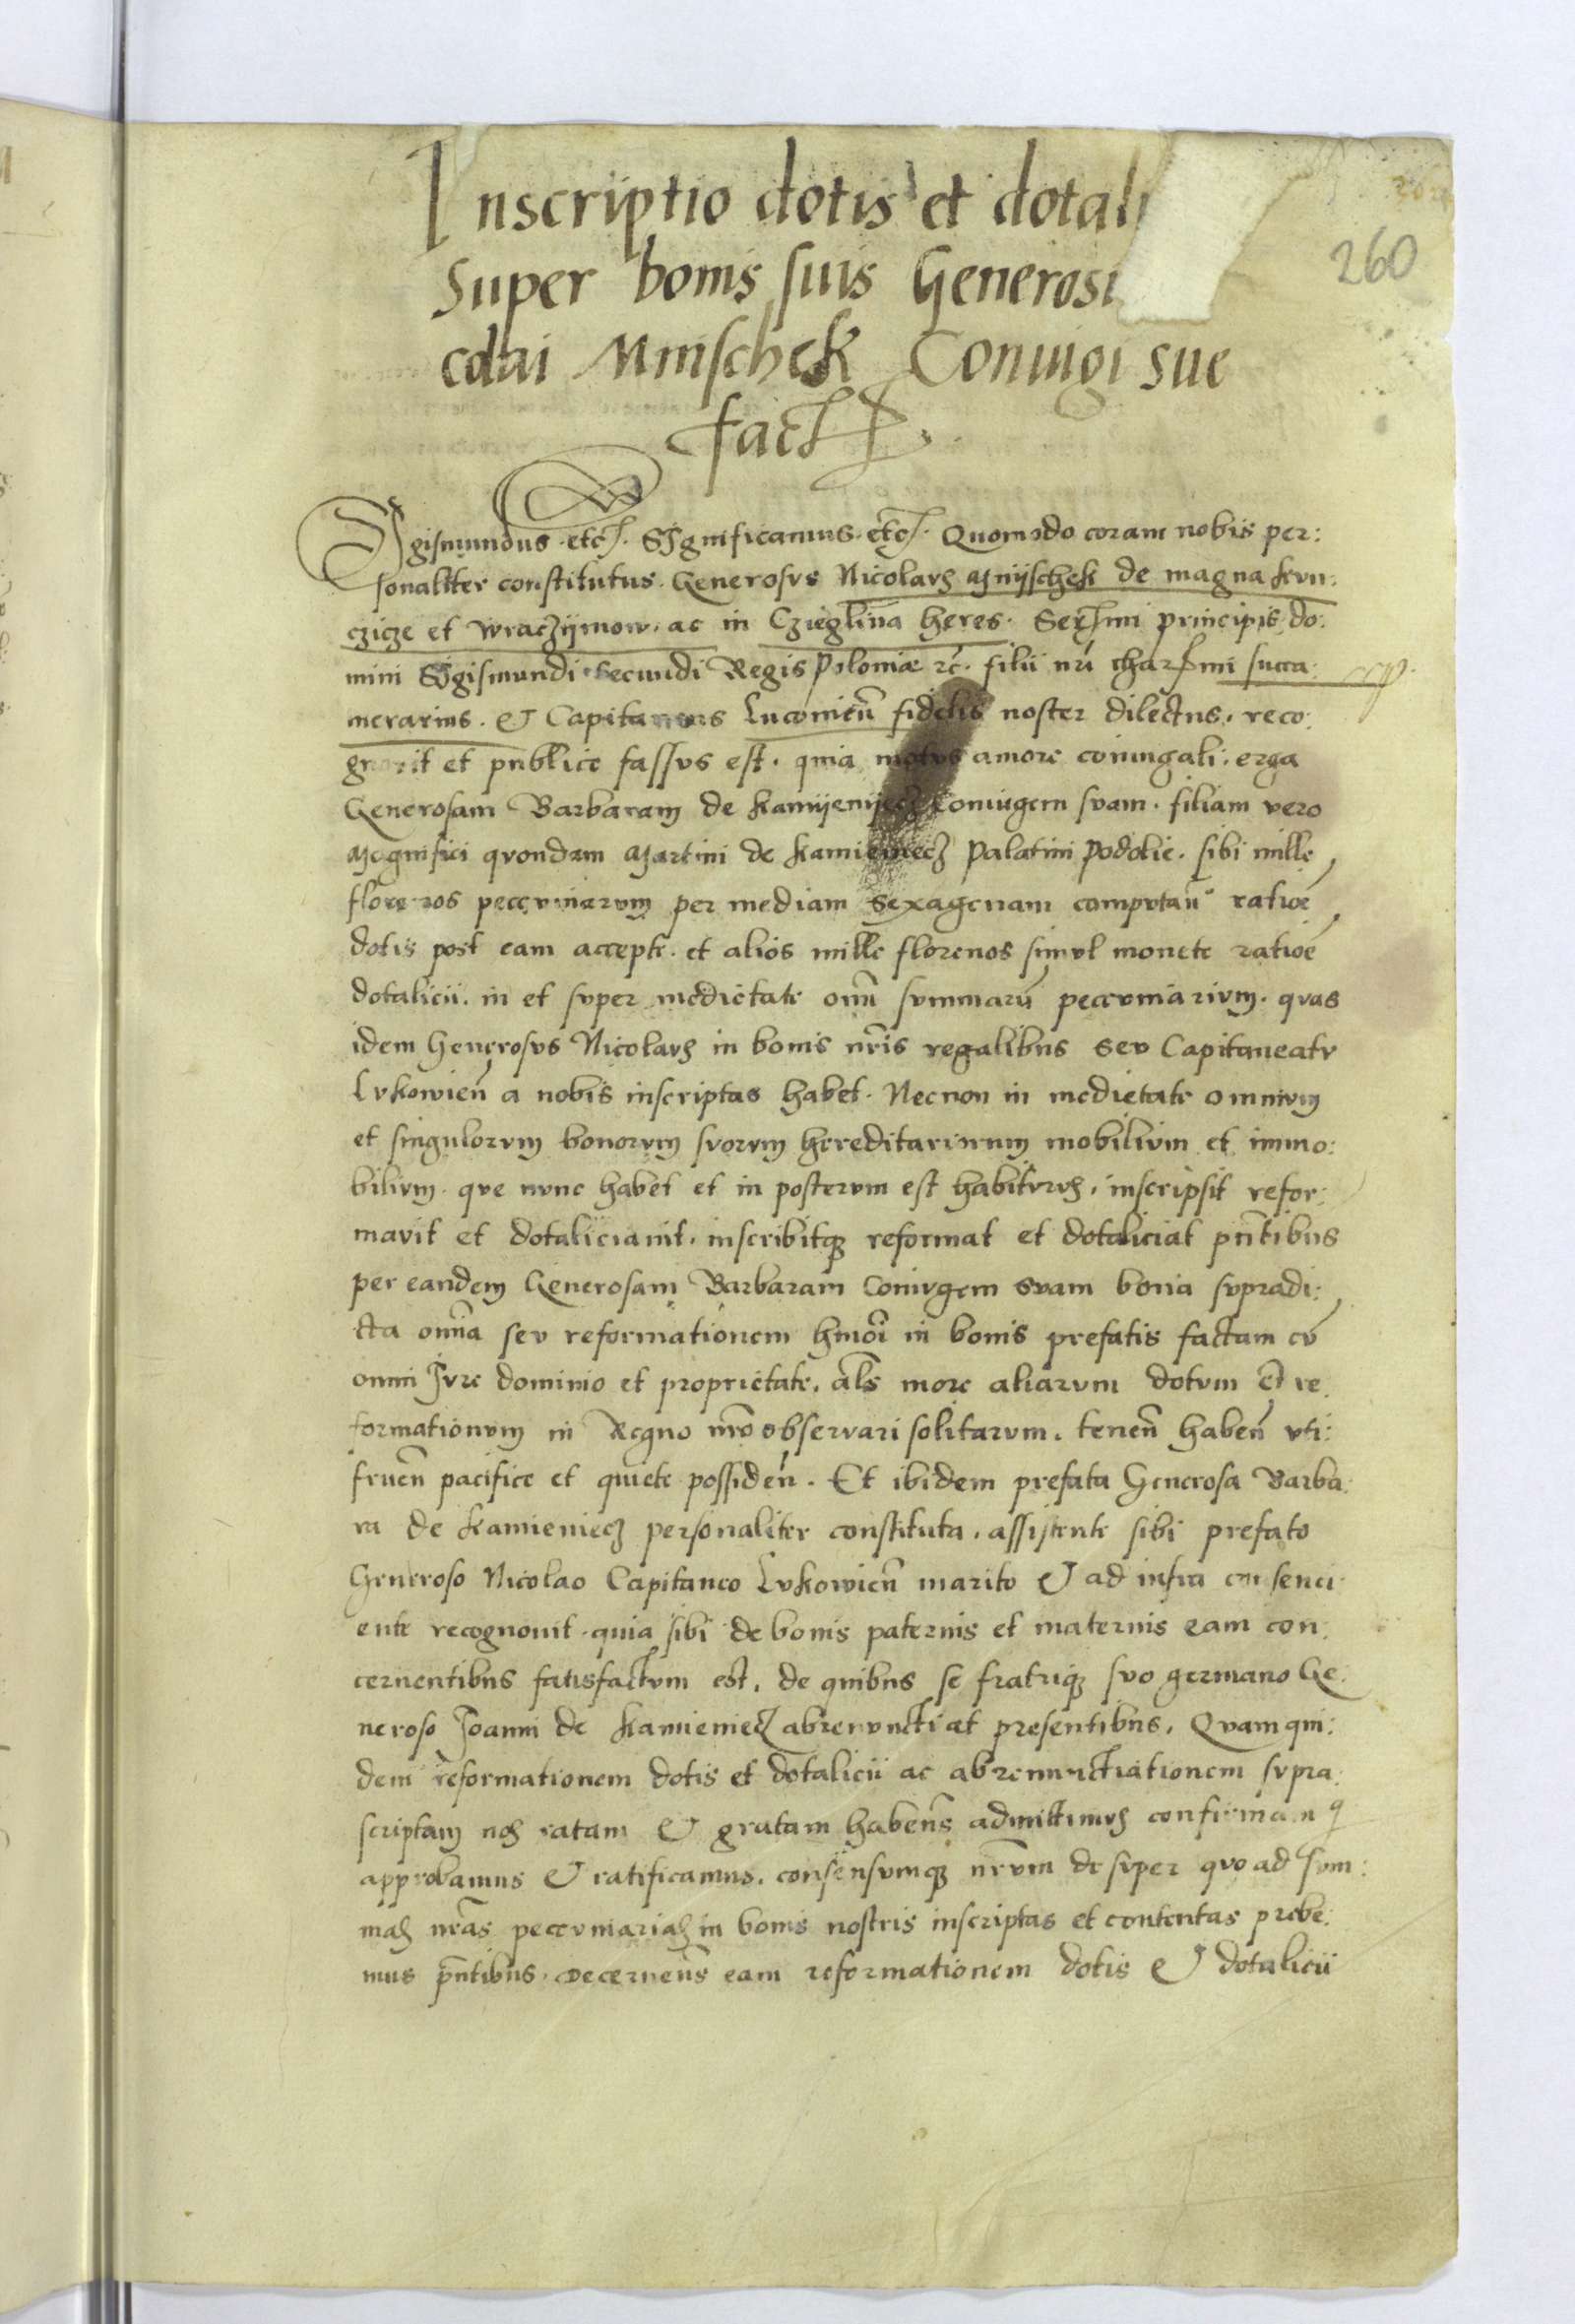 260
Inscriptio dotis et dotali
Super bonis suis Generosi
colai Mnischek Coniugi sue
fact
Sigismundus etc. Significamus etc. Quomodo coram nobis per:
sonaliter constitutus Generosus Nicolaus Mnijschek de magna Kun:
czicze et Wraczijmow ac in Czieglina heres. Serſmi principis do:
mini Sigismundi Secundi Regis Poloniæ rc̃. filii nrĩ charſmi succa:
merarius et Capitaneus Luconieñ fidelis noster dilectus, reco:
gnovit et publice fassus est. quia motus amore coniugali erga
Generosam Barbaram de Kamijenijecz Coniugem suam. filiam vero
Magnifici quondam Martini de Kamieniecz Palatini Podolie. sibi mille
florenos pecuniarum per mediam sexagenam computañ ratioẽ
dotis post eam accepte. et alios mille florenos simul monete ratioẽ
dotalicii. in et super medietate oñi summarũ pecuniarium. quas
idem Generosus Nicolaus in bonis nr̃is regalibus seu Capitaneatu
Lukowieñ a nobis inscriptas habet. Necnon in medietate omnium
et singulorum bonorum suorum hereditariorum mobilium et immo:
bilium. que nunc habet et in posterum est habiturus. inscripsit refor:
mavit et dotaliciavit. inscribitqꝫ reformat et dotaliciat pñtibus
per eandem Generosam Barbaram Coniugem suam bona supradi:
cta oñia seu reformationem hmõi in bonis prefatis factam cũ
omni Jure dominio et proprietate, al̃s more aliarum dotum et re:
formationum in Regno nr̃o observari solitarum. teneñ habeñ uti:
frueñ pacifice et quiete possideñ. Et ibidem prefata Generosa Barba:
ra de Kamieniecz personaliter constituta, assistente sibi prefato
Generoso Nicolao Capitaneo Lukowieñ marito et ad infra consenci:
ente recognovit. quia sibi de bonis paternis et maternis eam con:
cernentibus satisfactum est, de quibus se fratriqꝫ suo germano Ge:
neroso Joanni de Kamieniecz abrenunctiat presentibus. Quam qui:
dem reformationem dotis et dotalicii ac abrenunctiationem supra:
scriptam nos ratam et gratam habeñs admittimus confirmamꝰ
approbamus et ratificamus. consensumqꝫ nr̃um de super quo ad sum:
mas nr̃as pecuniarias in bonis nostris inscriptas et contentas prebe:
mus pñtibus. Decerneñs eam reformationem dotis et dotalicii